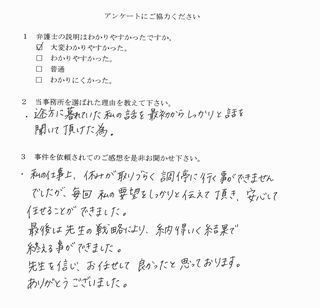 アンケートにご協力ください
1 弁護士の説明はわかりやすかったですか。
☑ 大変わかりやすかった。
□ わかりやすかった。
□ 普通
□ わかりにくかった。
2 当事務所を選ばれた理由を教えて下さい。
・途方に暮れていた私の話を最初からしっかりと話を
聞いて頂けた為。
3 事件を依頼されてのご感想を是非お聞かせ下さい。
・私の仕事上、休みが取りづらく調停に行く事ができません
でしたが、毎回私の要望をしっかりと伝えて頂き、安心して
任せることができました。
最後は先生の戦略により、納得いく結果で
終える事ができました。
先生を信じ、お任せして良かったと思っております。
ありがとうございました。